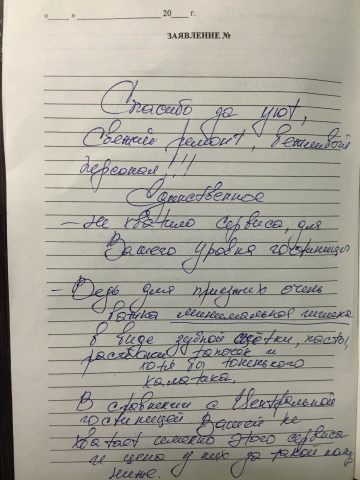 «___» ____________ 20___ г.
ЗАЯВЛЕНИЕ №
Спасибо за уют,
Свежий ремонт, вежливый
персонал!!!
Единственное
— не хватило сервиса, для
Вашего уровня гостиницы
— Ведь для приезжих очень
важна минимальная гигиена
в виде зубной щётки, пасты,
расчёски тапочек и
хотя бы тоненького
халатика.
В сравнении с Центральной
гостиницей Вашей не
хватает именно этого сервиса
и цена у них за такой номер
ниже.